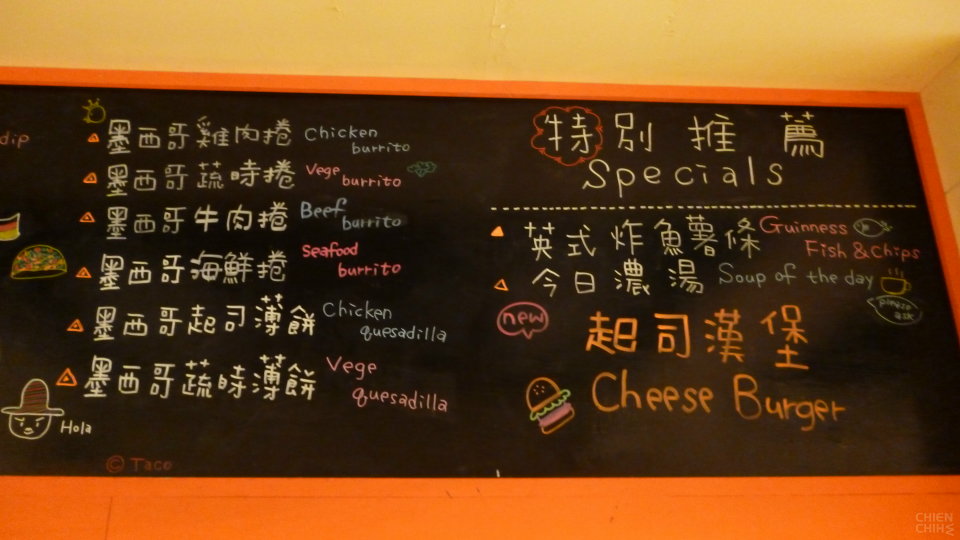 dip
墨西哥雞肉捲 Chicken burrito
墨西哥蔬時捲 Vege burrito
墨西哥牛肉捲 Beef burrito
墨西哥海鮮捲 Seafood burrito
墨西哥起司薄餅 Chicken quesadilla
墨西哥蔬時薄餅 Vege quesadilla
Hola
© Taco
特別推薦
Specials
英式炸魚薯條 Guinness Fish & Chips
今日濃湯 Soup of the day
please ask
new
起司漢堡
Cheese Burger
CHIEN
CHIH